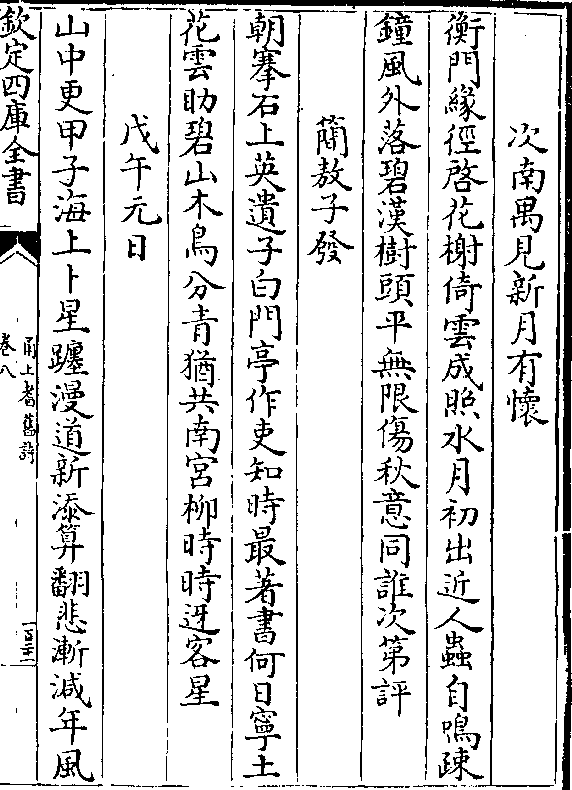 次南禺見新月有懷
衡門緣徑啓花榭倚雲成照水月初出近人蟲自鳴疎
鐘風外落碧漢樹頭平無限傷秋意同誰次第評
蕳敖子發
朝搴石上英遺子白門亭作吏知時最著書何日寧土
花雲助碧山木鳥分青猶共南宮柳時時迓客星
戊午元日
山中更甲子海上卜星躔漫道新添算翻悲漸減年風
欽定四庫全書
甬上耆舊詩
卷八